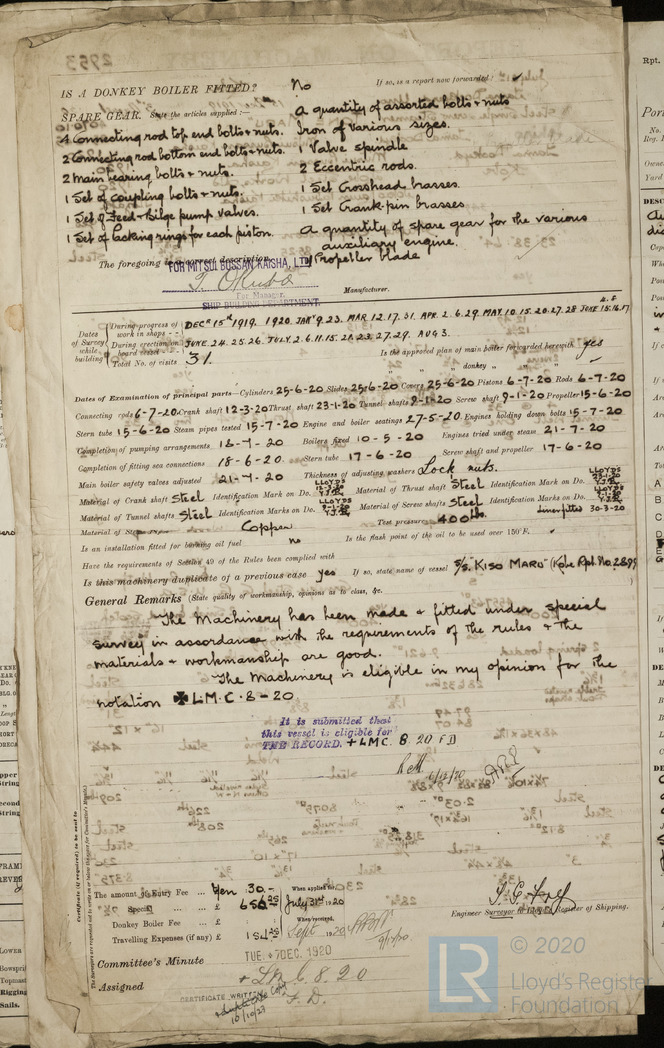 IS A DONKEY BOILER FITTED? No If so, is a report now forwarded?
SPARE GEAR. State the articles supplied:—
4 Connecting rod top end bolts & nuts.
2 Connecting rod bottom end bolts & nuts.
2 Main bearing bolts & nuts.
1 Set of coupling bolts & nuts.
1 Set of Feed & Bilge pump valves.
1 Set of Packing rings for each piston.
a quantity of assorted bolts & nuts
Iron of various sizes.
1 Valve spindle
2 Eccentric rods.
1 Set Crosshead brasses.
1 Set Crank-pin brasses
a quantity of spare gear for the various
auxiliary engine.
1 Propeller blade
The foregoing is a correct description,
FOR MITSUI BUSSAN KAISHA, LTD
Manager,
SHIP BUILDING DEPARTMENT.
Manufacturer.
Dates of Survey while building
During progress of work in shops - - DEC. 15th 1919. 1920 JAN 9. 23. MAR 12. 17. 31. APR. 2. 6. 29. MAY. 10. 15. 20. 27. 28 JUNE 15. 16. 17.
During erection on board vessel - - - JUNE 24. 25. 26. JULY 2. 6. 11. 15. 21. 23. 27. 29. AUG 3.
Total No. of visits 31.
Is the approved plan of main boiler forwarded herewith yes
" " " donkey " " "
Dates of Examination of principal parts—Cylinders 25-6-20 Slides 25-6-20 Covers 25-6-20 Pistons 6-7-20 Rods 6-7-20
Connecting rods 6-7-20 Crank shaft 12-3-20 Thrust shaft 23-1-20 Tunnel shafts 9-1-20 Screw shaft 9-1-20 Propeller 15-6-20
Stern tube 15-6-20 Steam pipes tested 15-7-20 Engine and boiler seatings 27-5-20 Engines holding down bolts 15-7-20
Completion of pumping arrangements 18-7-20 Boilers fixed 10-5-20 Engines tried under steam 21-7-20
Completion of fitting sea connections 18-6-20. Stern tube 17-6-20 Screw shaft and propeller 17-6-20
Main boiler safety valves adjusted 21-7-20 Thickness of adjusting washers Lock nuts.
Material of Crank shaft Steel Identification Mark on Do. LLOYD'S 12-3-20 Material of Thrust shaft Steel Identification Mark on Do. LLOYD'S 23-1-20
Material of Tunnel shafts Steel Identification Marks on Do. LLOYD'S 9-1-20 Material of Screw shafts Steel Identification Marks on Do. LLOYD'S 9-1-20
liner fitted 30-3-20
Material of Steam Pipes Copper Test pressure 400 lbs.
Is an installation fitted for burning oil fuel no Is the flash point of the oil to be used over 150°F.
Have the requirements of Section 49 of the Rules been complied with
Is this machinery duplicate of a previous case yes If so, state name of vessel S/S. "KISO MARU" (Kobe Rpt. No. 2899
General Remarks (State quality of workmanship, opinions as to class, &c.
The Machinery has been made & fitted under special
survey in accordance with the requirements of the rules & the
materials & workmanship are good.
The Machinery is eligible in my opinion for the
notation ✠ L.M.C. 8-20.
It is submitted that
this vessel is eligible for
THE RECORD. + LMC. 8. 20 F D
Certificate (if required) to be sent to
The Surveyors are requested not to write on or below the space for Committee's Minute.
The amount of Entry Fee ... Yen 30.- When applied for,
Special ... £ July 31st 1920
Donkey Boiler Fee ... £ When received,
Travelling Expenses (if any) £ Sept 1920
Engineer Surveyor to Lloyd's Register of Shipping.
Committee's Minute TUE. 7 DEC. 1920
Assigned + L.M.C. 8. 20
F. D.
CERTIFICATE WRITTEN
Duplicate Copy
10/10/23
© 2020
Lloyd's Register
Foundation